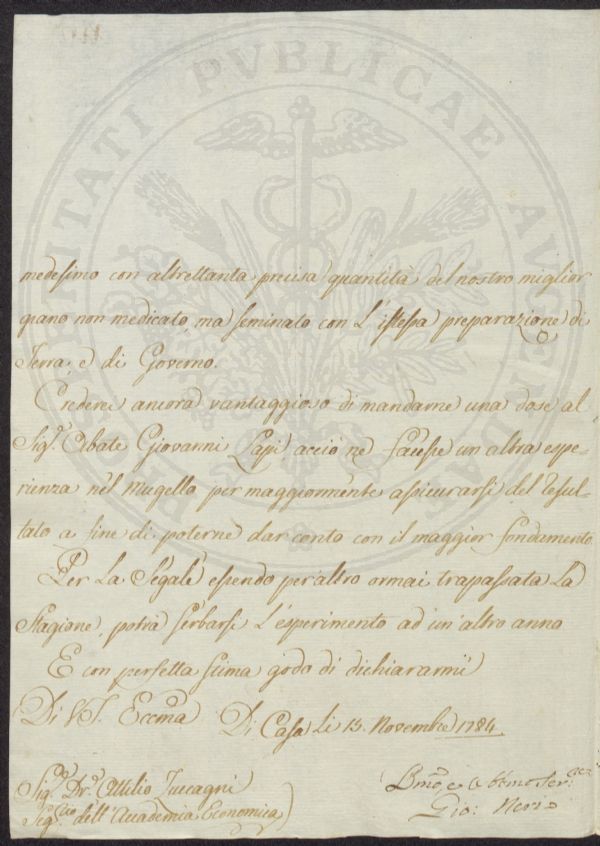 PROSPERITATI PVBLICAE AVGENDAE
medesimo con altrettanta precisa quantità del nostro miglior
grano non medicato, ma seminato con L'istessa preparazione di
Terra, e di Governo.
Crederei ancora vantaggioso di mandarne una dose al
Sig.r Abate Giovanni Lapi acciò ne facesse un altra espe-
rienza nel Mugello per maggiormente assicurarsi del resul-
tato a fine di poterne dar conto con il maggior fondamento
Per La Segale essendo per altro ormai trapassata La
Stagione, potrà serbarsi L'esperimento ad un'altro anno
E con perfetta stima godo di dichiararmi
Di V.S. Eccma Di Casa Li 15. Novembre 1784.
Sig.r Dr. Attilio Zuccagni
Seg.rio dell'Accademia Economica
Gio: Neri